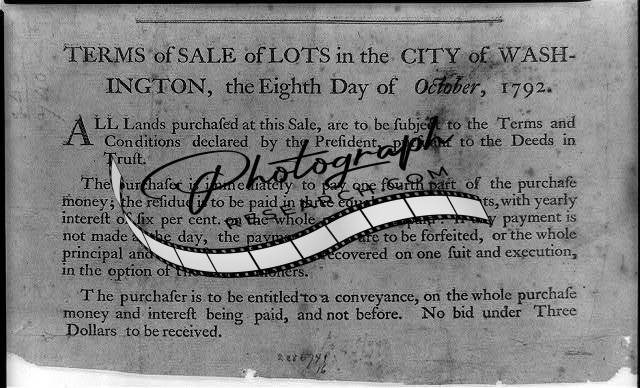 TERMS of SALE of LOTS in the CITY of WASH-
INGTON, the Eighth Day of October, 1792.
ALL Lands purchaſed at this Sale, are to be ſubject to the Terms and
Conditions declared by the Preſident, to the Deeds in
Truſt.
Photograph
The Purchaſer is immediately to pay one fourth part of the purchaſe
money; the reſidue is to be paid in three with yearly
intereſt of ſix per cent. on the whole payment is
not made the day, the are to be forfeited, or the whole
principal and recovered on one ſuit and execution,
in the option of
The purchaſer is to be entitled to a conveyance, on the whole purchaſe
money and intereſt being paid, and not before. No bid under Three
Dollars to be received.